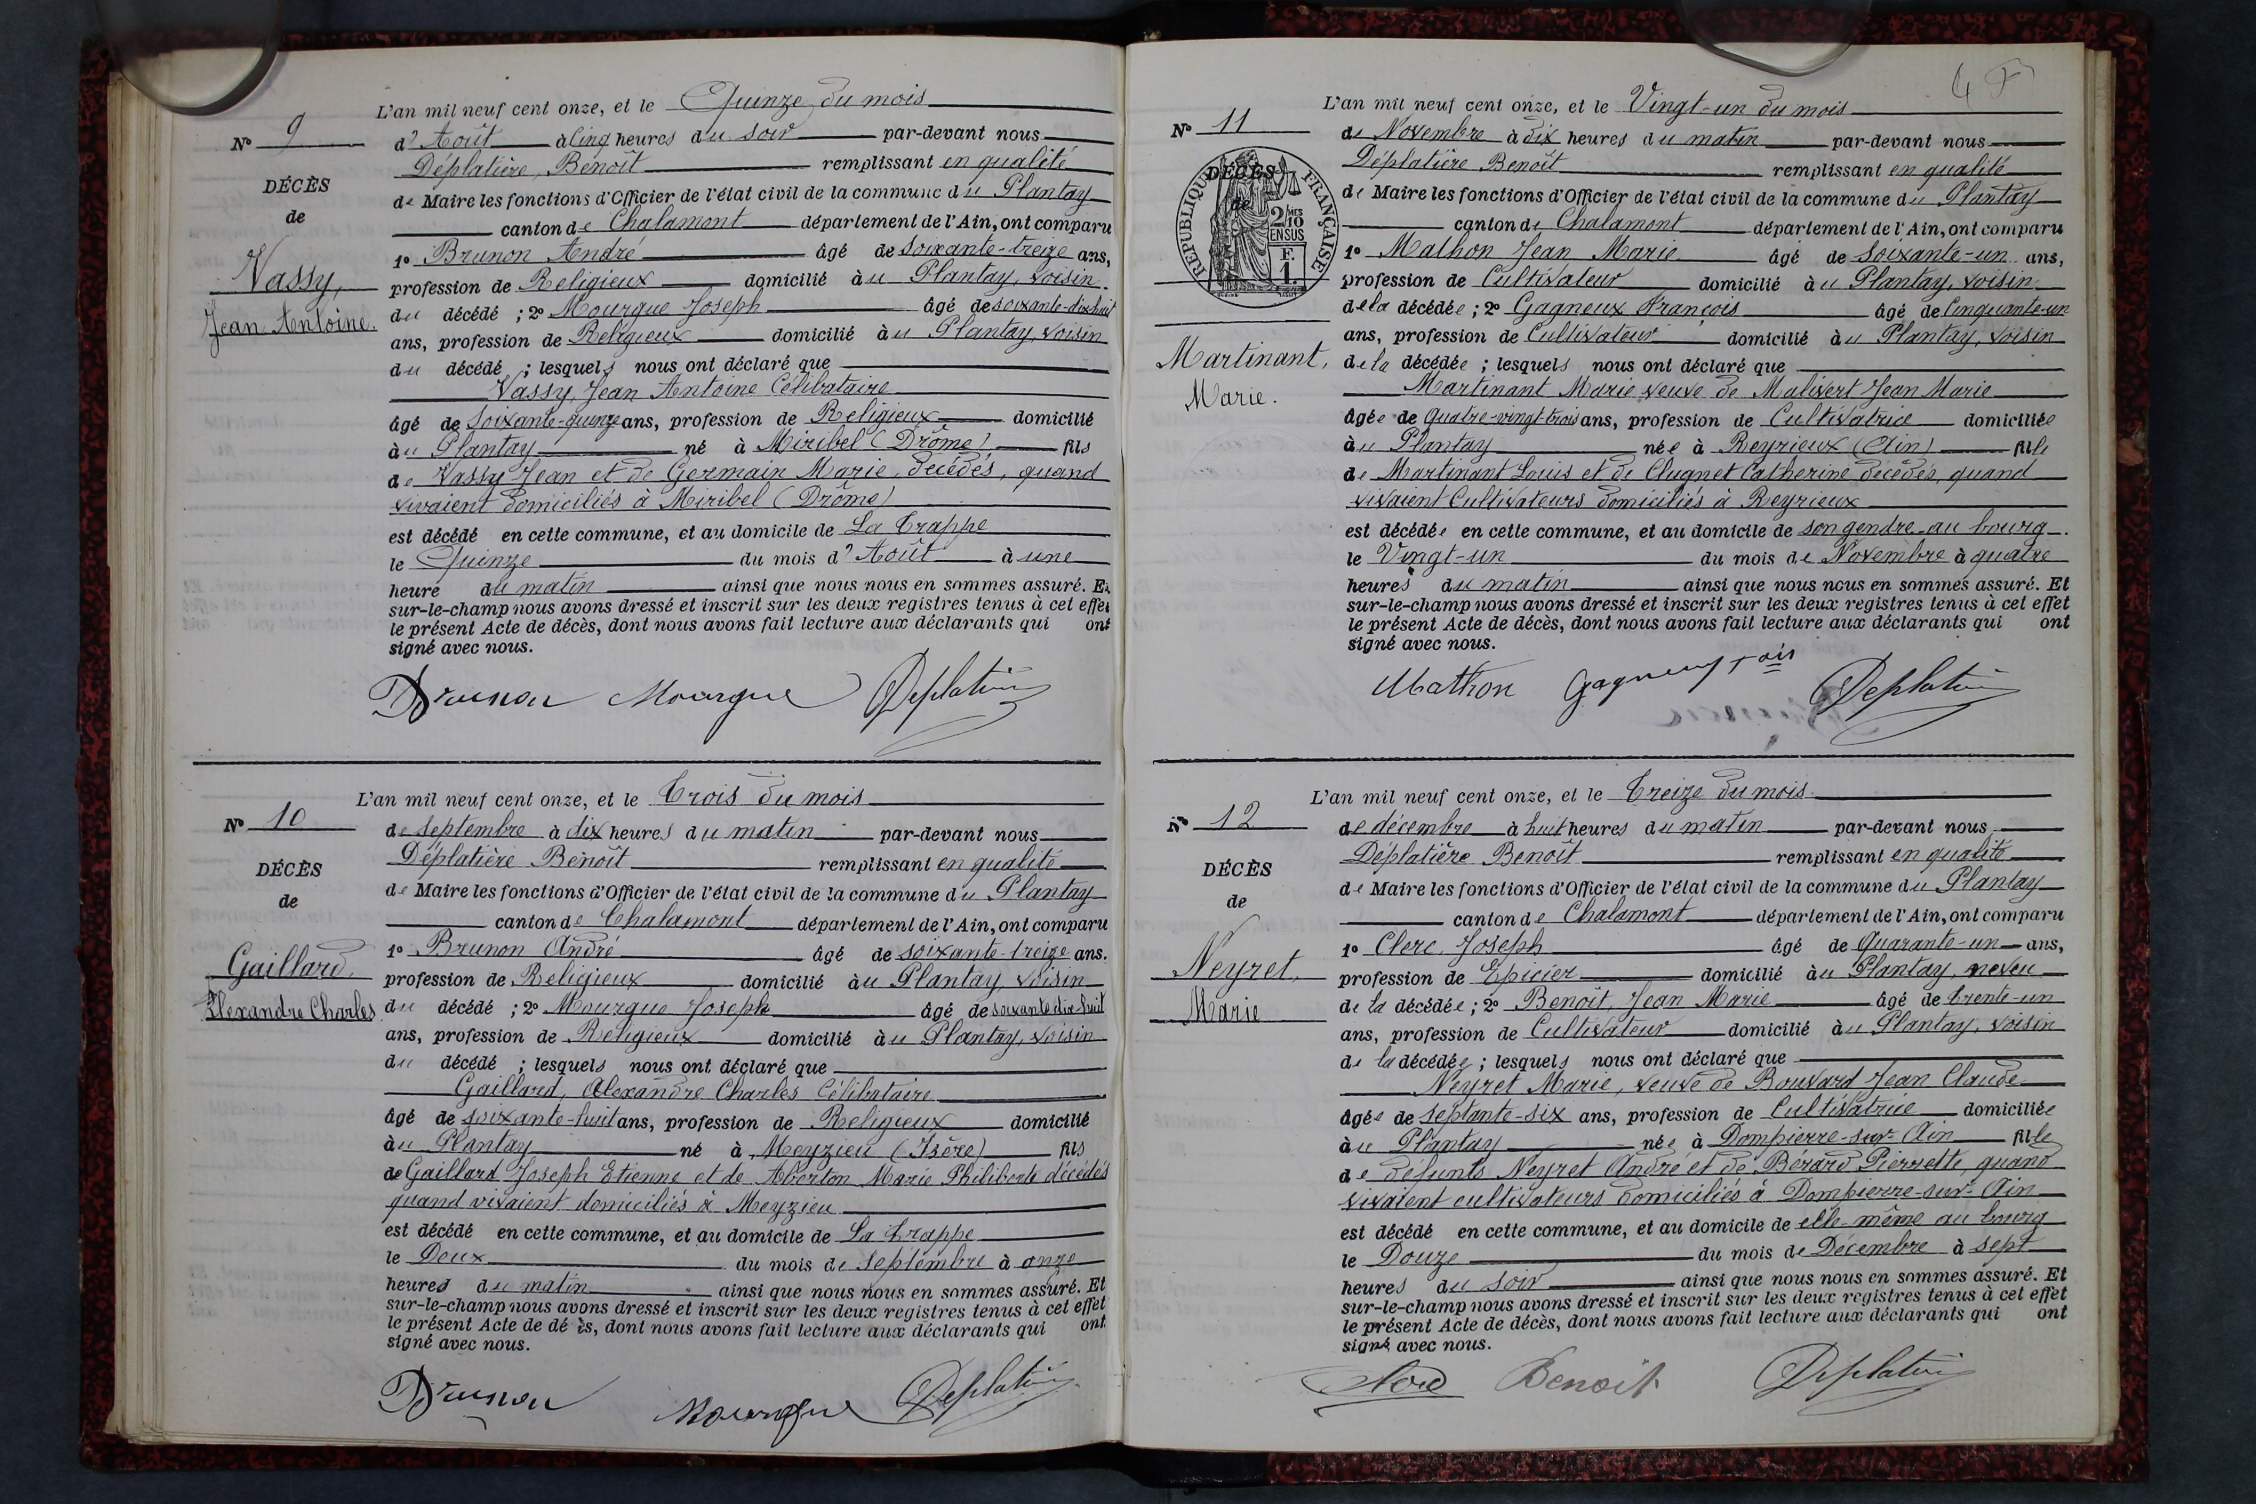 L'an mil neuf cent onze, et le Quinze du mois
No 9
d'Août à Cinq heures du soir par-devant nous
Déplatière, Benoît remplissant en qualité
DÉCÈS
de Maire les fonctions d'Officier de l'état civil de la commune du Plantay
de
canton de Chalamont département de l'Ain, ont comparu
1o Brunon André âgé de soixante-treize ans,
Vassy,
profession de Religieux domicilié au Plantay, voisin
Jean Antoine.
du décédé ; 2o Mourgue Joseph âgé de soixante-dix-huit
ans, profession de Religieux domicilié au Plantay, voisin
du décédé ; lesquels nous ont déclaré que
Vassy Jean Antoine Célibataire
âgé de soixante-quinze ans, profession de Religieux domicilié
au Plantay né à Miribel (Drôme) fils
de Vassy Jean et de Germain Marie, décédés, quand
vivaient domiciliés à Miribel (Drôme)
est décédé en cette commune, et au domicile de La Trappe
le Quinze du mois d'Août à une
heure du matin ainsi que nous nous en sommes assuré. Et
sur-le-champ nous avons dressé et inscrit sur les deux registres tenus à cet effet
le présent Acte de décès, dont nous avons fait lecture aux déclarants qui ont
signé avec nous.
Brunon Mourgue Deplatière
L'an mil neuf cent onze, et le Trois du mois
No 10
de septembre à dix heures du matin par-devant nous
Déplatière Benoît remplissant en qualité
DÉCÈS
de Maire les fonctions d'Officier de l'état civil de la commune du Plantay
de
canton de Chalamont département de l'Ain, ont comparu
1o Brunon André âgé de soixante-treize ans.
Gaillard
profession de Religieux domicilié au Plantay, voisin
Alexandre Charles
du décédé ; 2o Mourgue Joseph âgé de soixante dix-huit
ans, profession de Religieux domicilié au Plantay, voisin
du décédé ; lesquels nous ont déclaré que
Gaillard, Alexandre Charles Célibataire
âgé de soixante-huit ans, profession de Religieux domicilié
au Plantay né à Meyzieu (Isère) fils
de Gaillard Joseph Etienne et de Marie Philiberte décédés
quand vivaient domiciliés à Meyzieu
est décédé en cette commune, et au domicile de La trappe
le Deux du mois de septembre à onze
heures du matin ainsi que nous nous en sommes assuré. Et
sur-le-champ nous avons dressé et inscrit sur les deux registres tenus à cet effet
le présent Acte de dé ès, dont nous avons fait lecture aux déclarants qui ont
signé avec nous.
Brunon Mourgue Deplatière
4
L'an mil neuf cent onze, et le Vingt-un du mois
No 11
de Novembre à dix heures du matin par-devant nous
Déplatière Benoît remplissant en qualité
DÉCÈS
de
RÉPUBLIQUE FRANÇAISE
2/10 EN SUS
F. 1.
de Maire les fonctions d'Officier de l'état civil de la commune du Plantay
canton de Chalamont département de l'Ain, ont comparu
1o Mathon Jean Marie âgé de Soixante-un ans,
profession de Cultivateur domicilié au Plantay, voisin
de la décédée ; 2o Gagneux François âgé de Cinquante-un
ans, profession de Cultivateur domicilié au Plantay, voisin
Martinant,
de la décédée ; lesquels nous ont déclaré que
Marie.
Martinant Marie veuve de Malivert Jean Marie
âgée de quatre-vingt-trois ans, profession de Cultivatrice domiciliée
au Plantay née à Reyrieux (Ain) fille
de Martinant Louis et de Clugnet Catherine décédés, quand
vivaient Cultivateurs domiciliés à Reyrieux
est décédée en cette commune, et au domicile de son gendre au bourg
le Vingt-un du mois de Novembre à quatre
heures du matin ainsi que nous nous en sommes assuré. Et
sur-le-champ nous avons dressé et inscrit sur les deux registres tenus à cet effet
le présent Acte de décès, dont nous avons fait lecture aux déclarants qui ont
signé avec nous.
Mathon Gagneux fois Deplatière
L'an mil neuf cent onze, et le Treize du mois
No 12
de décembre à huit heures du matin par-devant nous
Déplatière Benoît remplissant en qualité
DÉCÈS
de Maire les fonctions d'Officier de l'état civil de la commune du Plantay
de
canton de Chalamont département de l'Ain, ont comparu
1o Clerc, Joseph âgé de Quarante-un ans,
Neyret,
profession de Epicier domicilié au Plantay, neveu
Marie
de la décédée ; 2o Benoît, Jean Marie âgé de trente-un
ans, profession de Cultivateur domicilié au Plantay, voisin
de la décédée ; lesquels nous ont déclaré que
Neyret Marie, veuve de Bouvard Jean Claude
âgée de septante-six ans, profession de Cultivatrice domiciliée
au Plantay née à Dompierre-sur-Ain fille
de défunts Neyret André et de Bérard Pierrette, quand
vivaient cultivateurs domiciliés à Dompierre-sur-Ain
est décédé en cette commune, et au domicile de elle-même au bourg
le Douze du mois de Décembre à sept
heures du soir ainsi que nous nous en sommes assuré. Et
sur-le-champ nous avons dressé et inscrit sur les deux registres tenus à cet effet
le présent Acte de décès, dont nous avons fait lecture aux déclarants qui ont
signé avec nous.
Benoit Deplatière